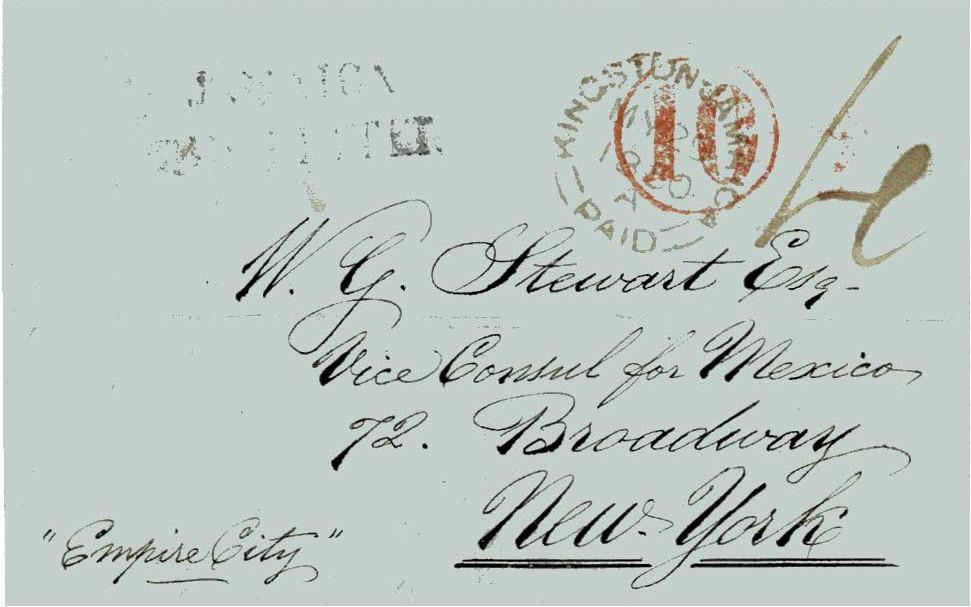 JAMAICA
KINGSTON-JAMAICA
PAID
10
W. G. Stewart Esq.
Vice Consul for Mexico
72. Broadway
New-York
"Empire City"